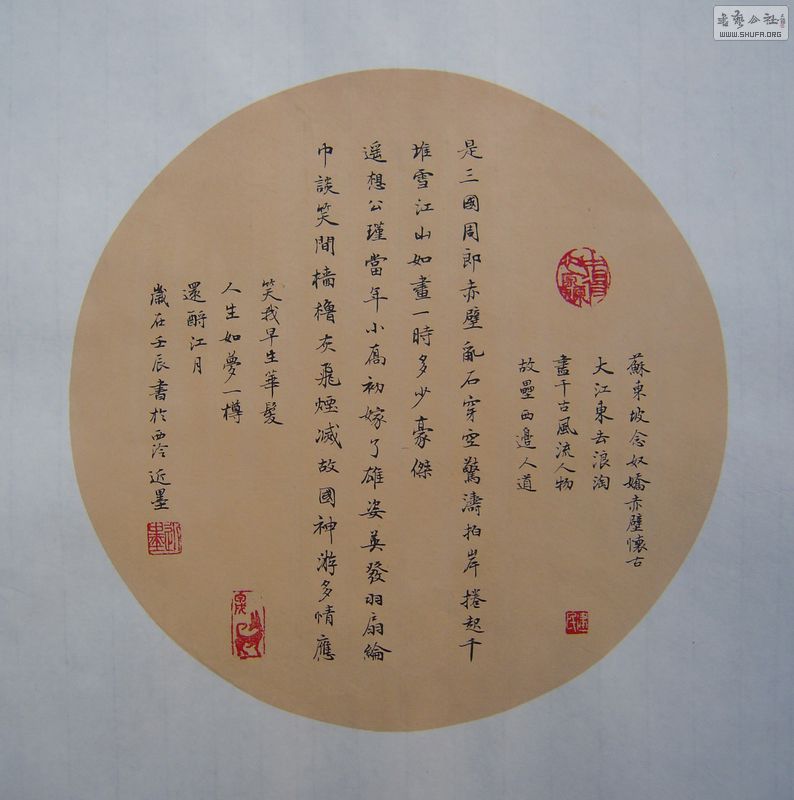 蘇東坡念奴嬌赤壁懷古
大江東去浪淘
盡千古風流人物
故壘西邊人道
是三國周郎赤壁亂石穿空驚濤拍岸捲起千
堆雪江山如畫一時多少豪傑
遥想公瑾當年小喬初嫁了雄姿英發羽扇綸
巾談笑間檣櫓灰飛煙滅故國神游多情應
笑我早生華髮
人生如夢一樽
還酹江月
歲在壬辰書於西泠近墨
書藝公社
WWW.SHUFA.ORG